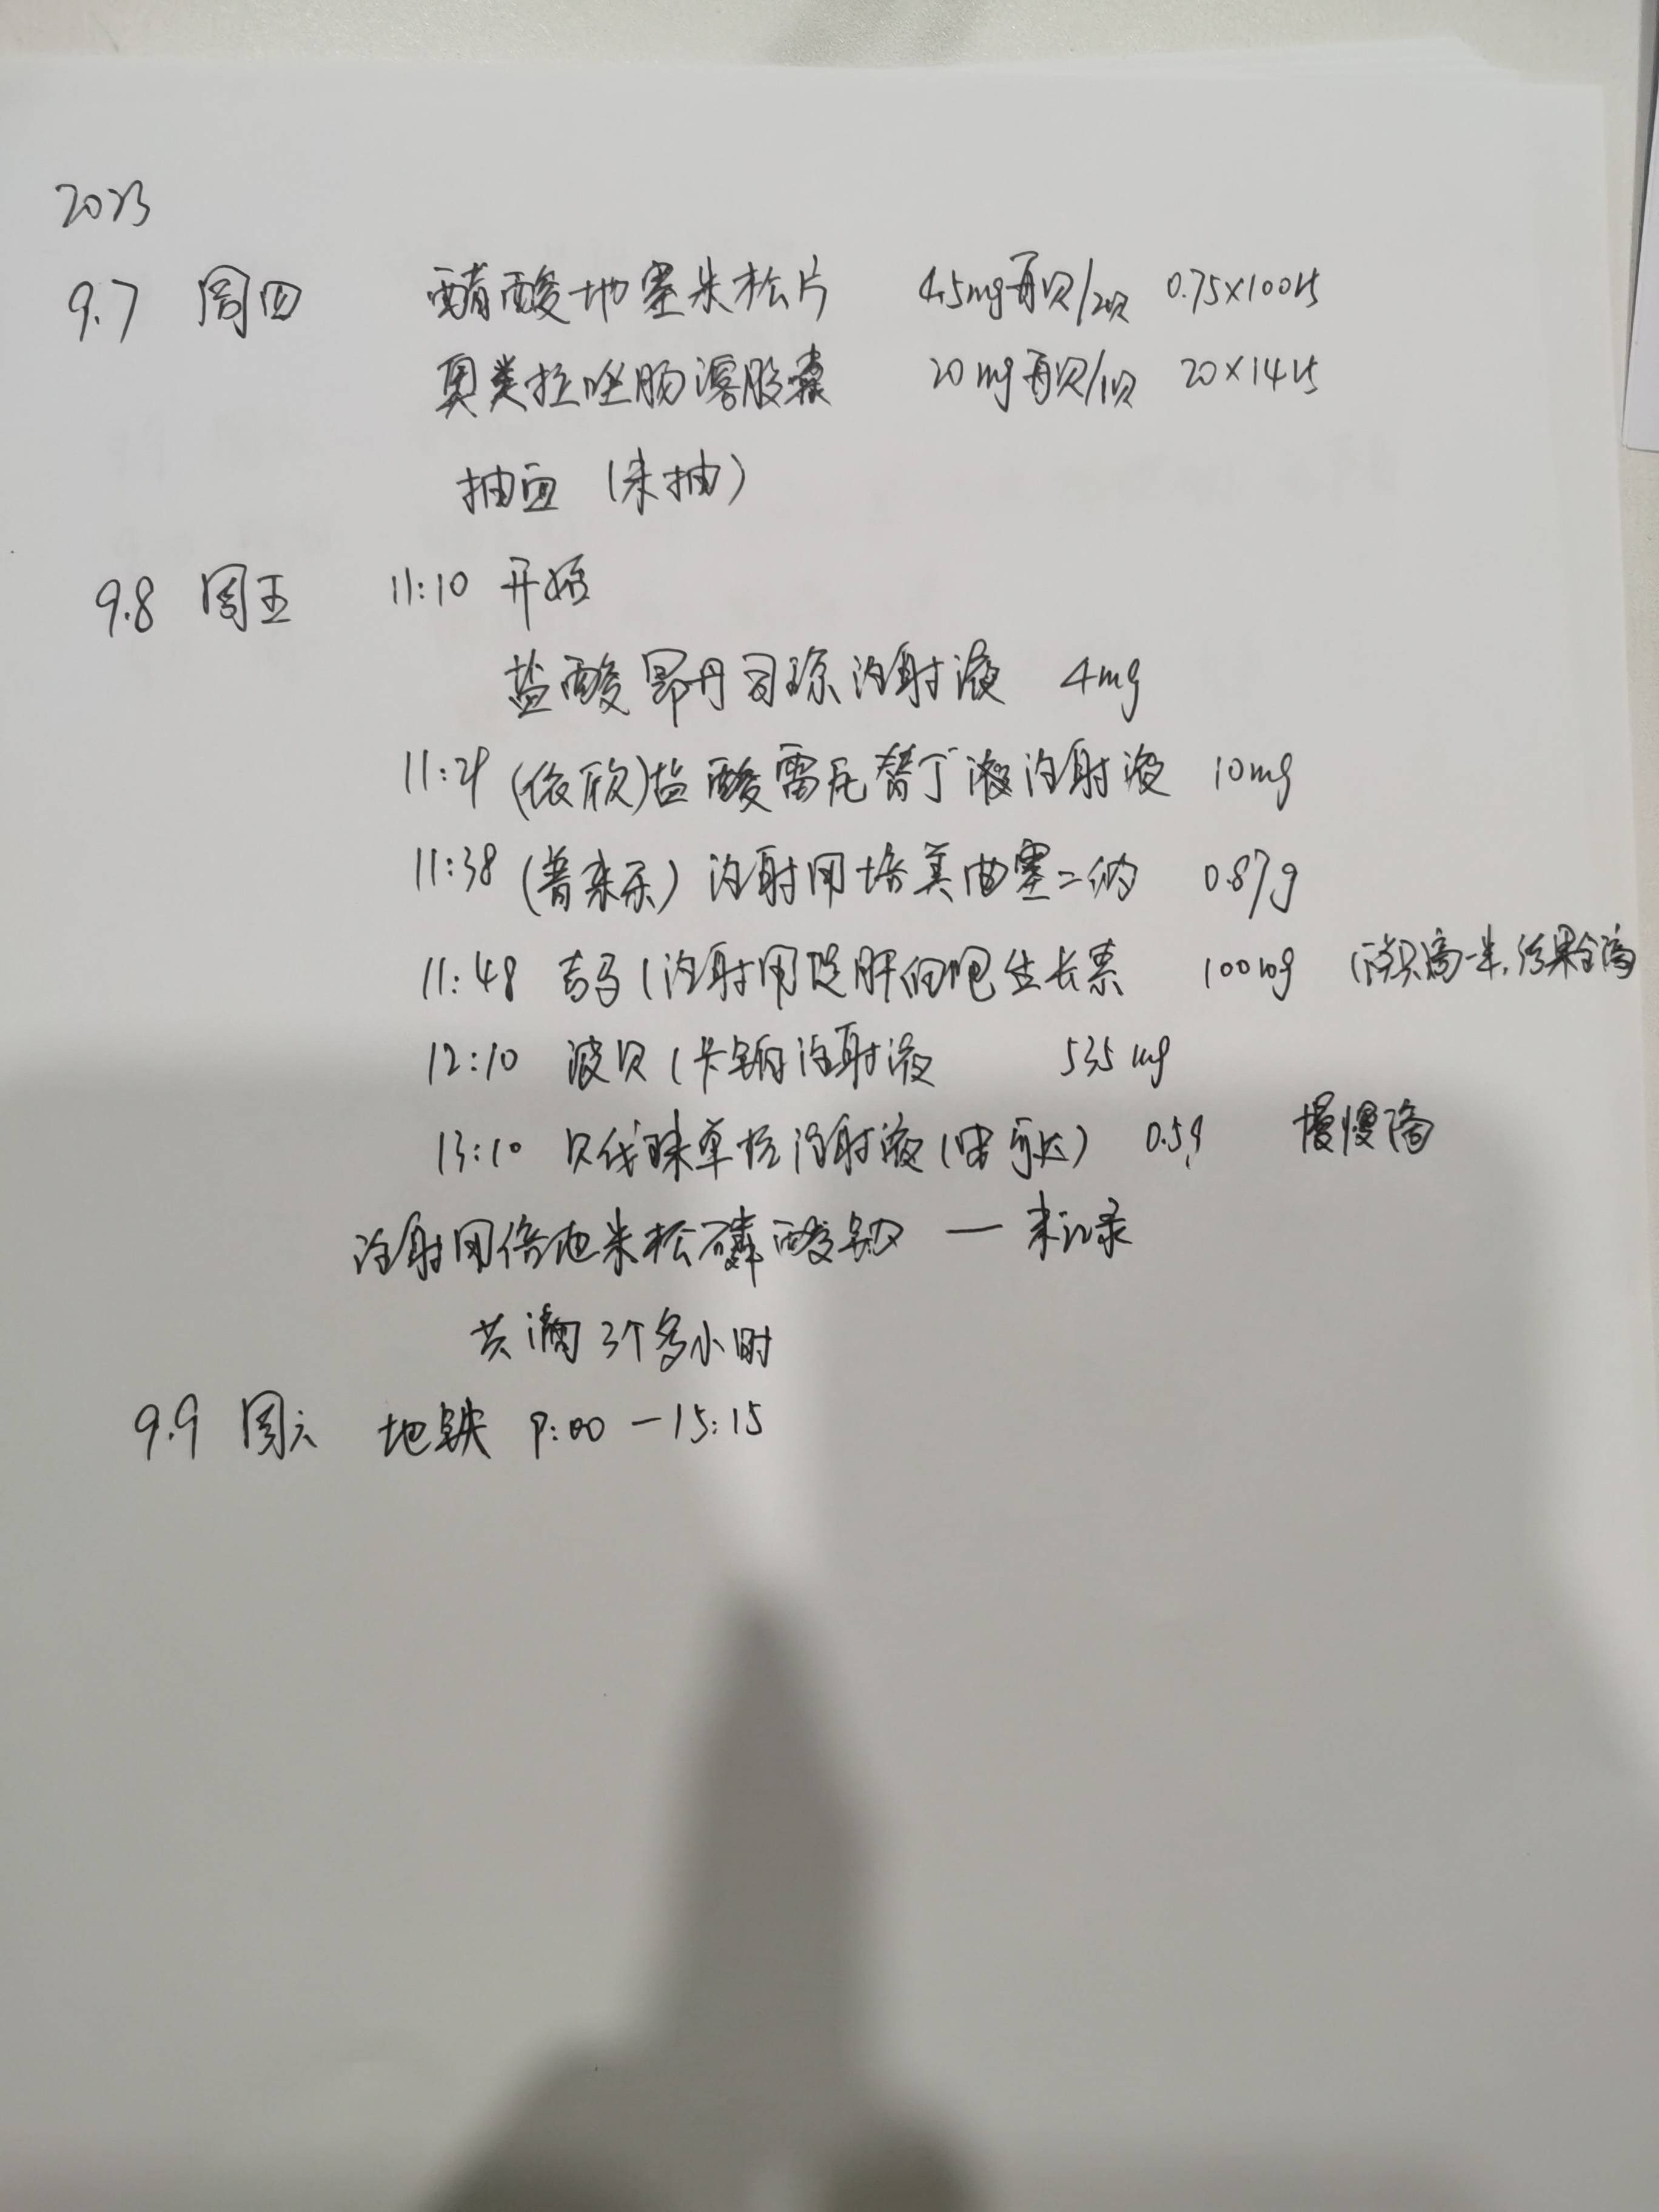 2023
9.7 周四 醋酸地塞米松片 4.5mg每次/2次 0.75×100片
奥美拉唑肠溶胶囊 20mg每次/1次 20×14片
抽血 (未抽)
9.8 周五 11:10 开始
盐酸昂丹司琼注射液 4mg
11:29 (依欣)盐酸雷尼替丁液注射液 10mg
11:38 (普来乐) 注射用培美曲塞二钠 0.87g
11:48 吉马(注射用促肝细胞生长素 100mg 只滴一半,结果全滴
12:10 波贝(卡铂注射液 535mg
13:10 贝伐珠单抗注射液 0.5g 慢慢滴
注射用倍他米松磷酸钠 — 未记录
共滴3个多小时
9.9 周六 地铁 9:00 - 15:15